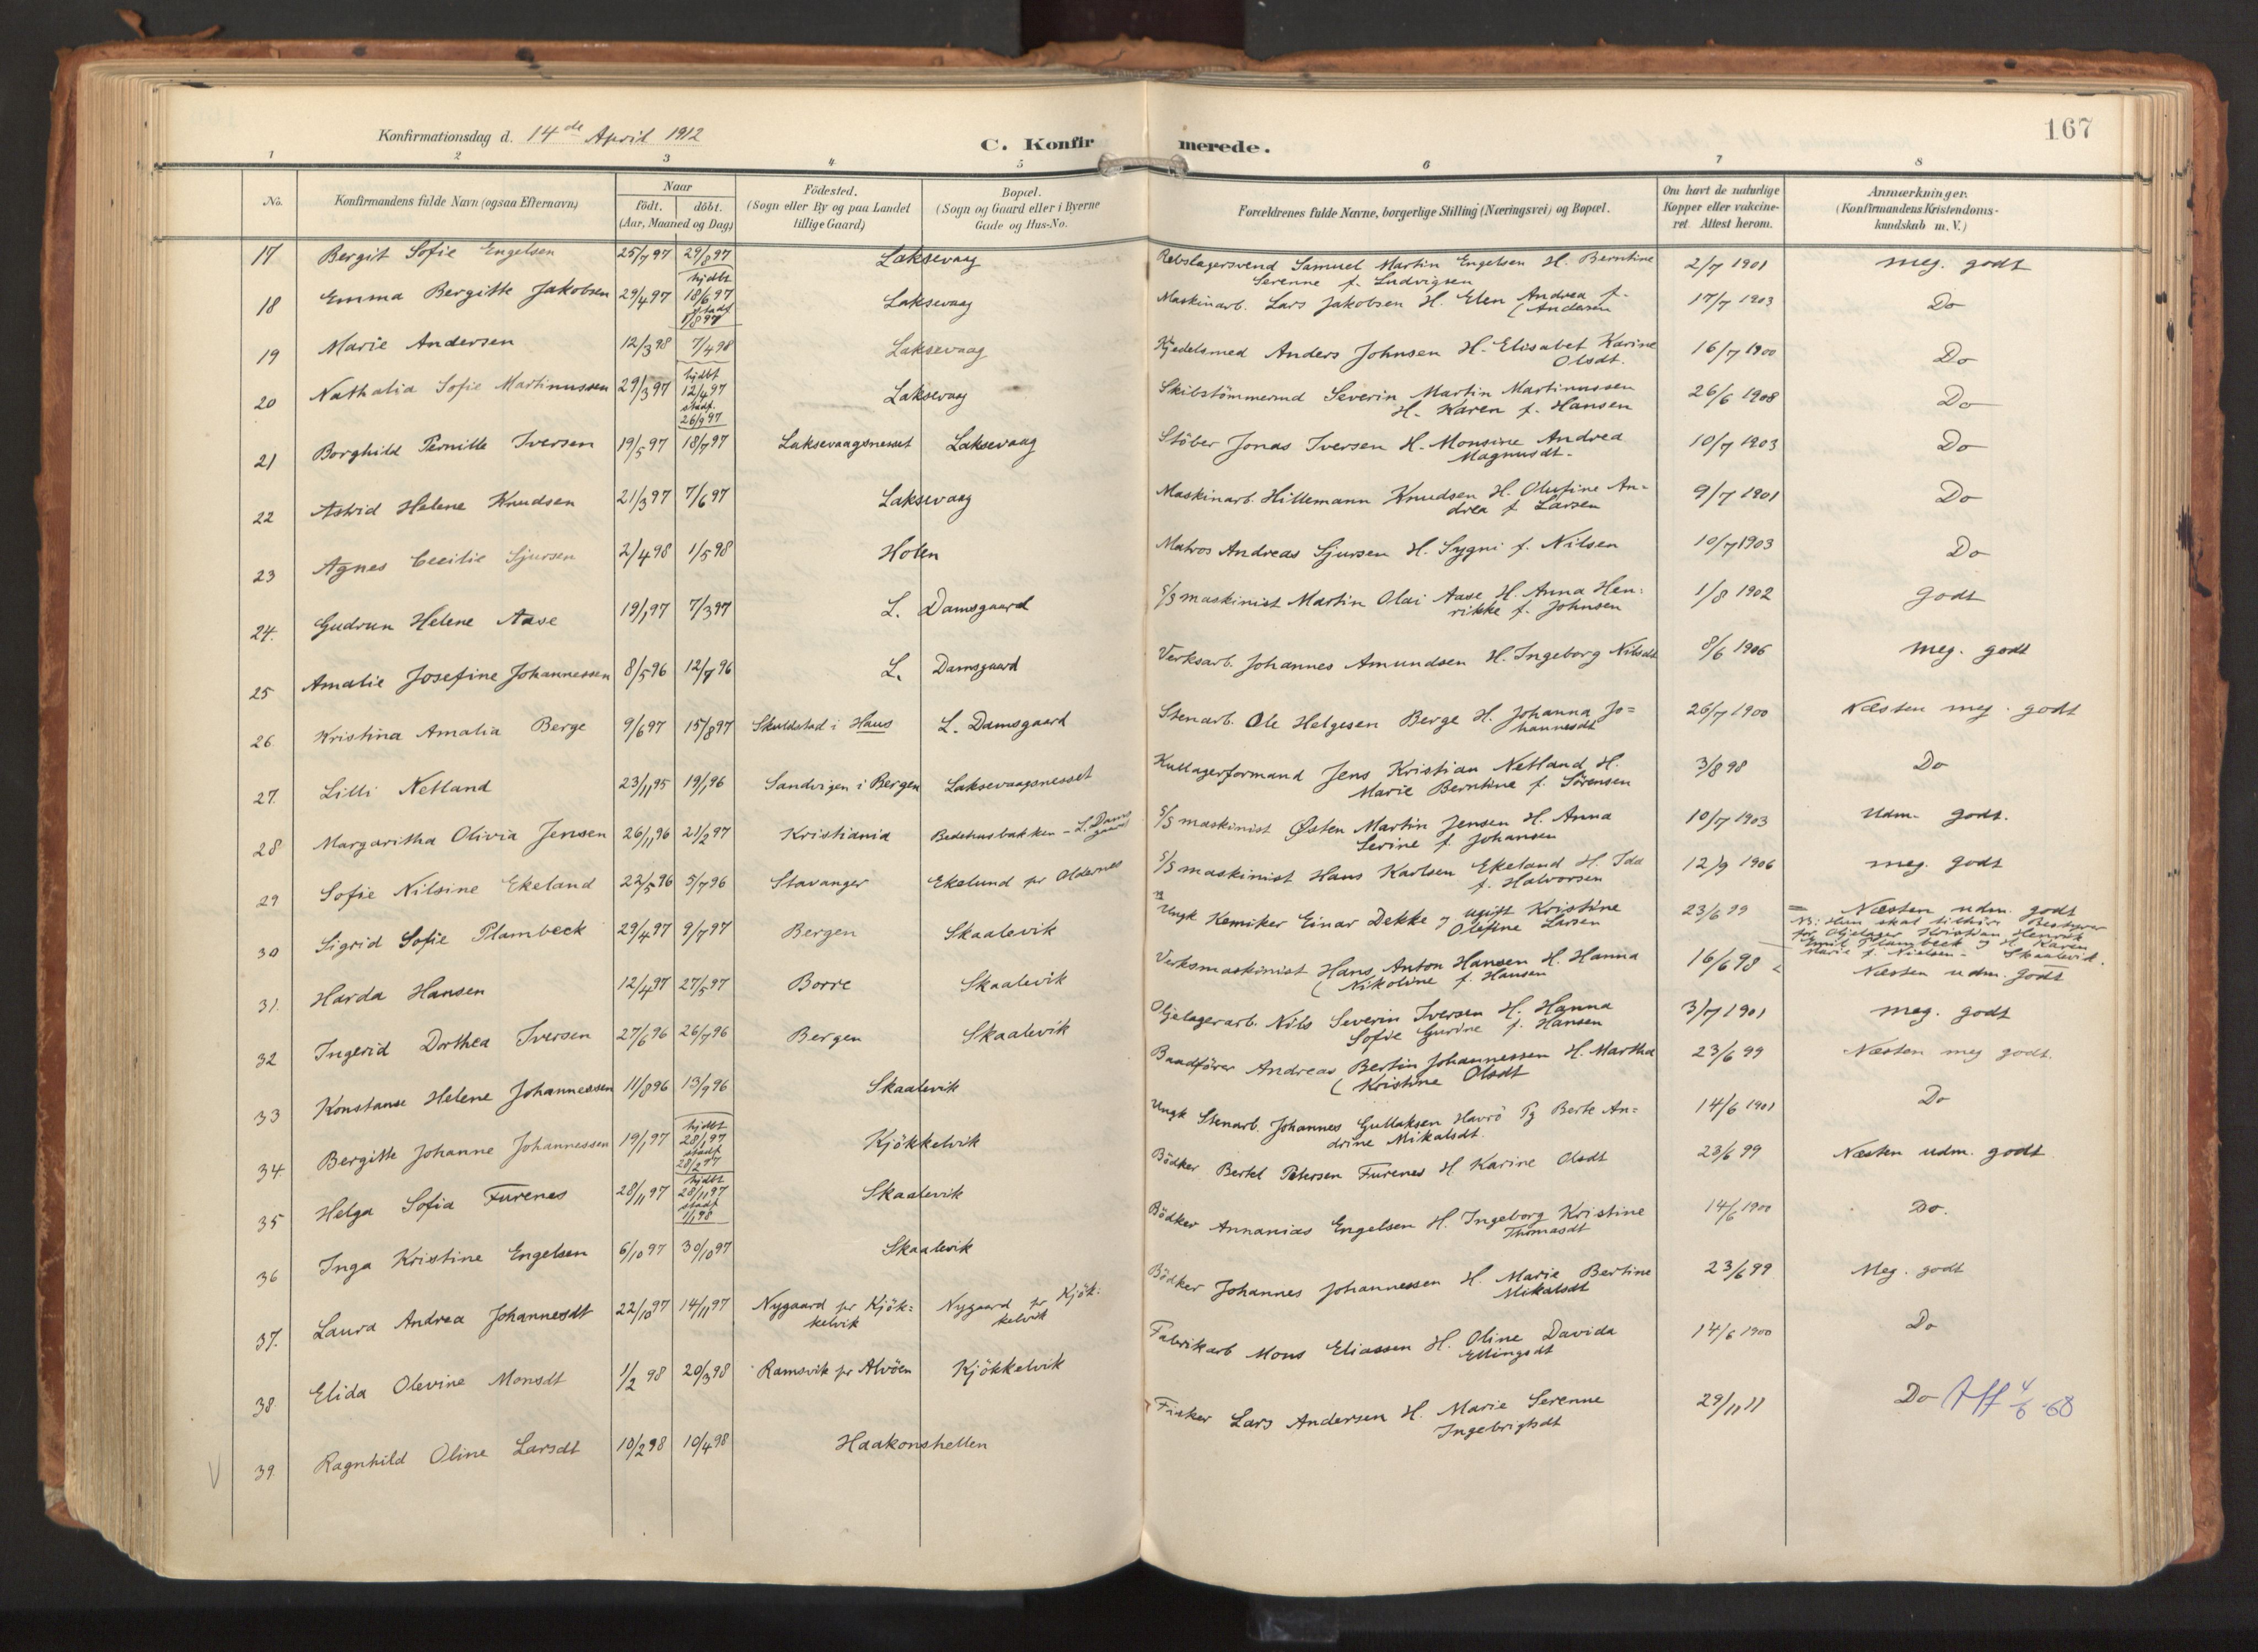 167
Konfirmationsdag d. 14de April 1912
C. Konfirmerede.
1 2 3 4 5 6 7 8
No.
Konfirmandens fulde Navn (ogsaa Efternavn)
Naar
födt. döbt.
(Aar, Maaned og Dag)
Födested.
(Sogn eller By og paa Landet
tillige Gaard)
Bopæl.
(Sogn og Gaard eller i Byerne
Gade og Hus-No.
Forældrenes fulde Navne, borgerlige Stilling (Næringsvei) og Bopæl.
Om havt de naturlige
Kopper eller vakcine-
ret. Attest herom.
Anmærkninger.
(Konfirmandens Kristendoms-
kundskab m. V.)
17 Bergit Sofie Engelsen 25/7 97 29/8 97 Laksevaag Rebslagersvend Samuel Martin Engelsen H. Berntine 2/7 1901 meg. godt
Serenne f. Ludvigsen
18 Emma Bergitte Jakobsen 29/4 97 hjdbt 18/6 97 stadf 1/8 97 Laksevaag Maskinarb. Lars Jakobsen H. Elen Andrea f. 17/7 1903 Do
(Andersen
19 Marie Andersen 12/3 98 7/4 98 Laksevaag Kjedelsmed Anders Johnsen H. Elisabet Karine 16/7 1900 Do
Olsdt.
20 Nathalia Sofie Martinussen 29/3 97 hjdbt 12/4 97 stadf. 26/9 97 Laksevaag Skibstömmermd Severin Martin Martinussen 26/6 1908 Do
H. Karen f. Hansen
21 Borghild Pernille Iversen 19/5 97 18/7 97 Laksevaagsnesset Laksevaag Stöber Jonas Iversen H. Monsine Andrea 10/7 1903 Do
Magnusdt.
22 Astrid Helene Knudsen 21/3 97 7/6 97 Laksevaag Maskinarb. Hillemann Knudsen H. Olufine An- 9/7 1901 Do
drea f. Larsen
23 Agnes Cecilie Sjursen 2/4 98 1/5 98 Holen Matros Andreas Sjursen H. Sygni f. Nilsen 10/7 1903 Do
24. Gudrun Helene Aase 19/1 97 7/3 97 L. Damsgaard S/S maskinist Martin Olai Aase H. Anna Hen- 1/8 1902 godt
rikke f. Johnsen
25 Amalie Josefine Johannessen 8/5 96 12/7 96 L. Damsgaard Verksarb. Johannes Amundsen H. Ingeborg Nilsdt 8/6 1906 meg. godt
26. Kristina Amalia Berge 9/6 97 15/8 97 Skuldstad i Haus L. Damsgaard Stenarb. Ole Helgesen Berge H. Johanna Jo= 26/7 1900 Næsten meg. godt
hannesdt
27. Lilli Netland 23/11 95 19/1 96 Sandvigen i Bergen Laksevaagsnesset Kullagerformand Jens Kristian Netland H. 3/8 98 Do
Marie Berntine f. Sörensen
28 Margaritha Olivia Jensen 26/11 96 21/2 97 Kristiania Bedehusbakken - L. Dams gaard S/S maskinist Østen Martin Jensen H. Anna 10/7 1903 Udm. godt.
Serine f. Johansen
29 Sofie Nilsine Ekeland 22/5 96 5/7 96 Stavanger Ekelund pr Oldernes S/S maskinist Hans Karlsen Ekeland H. Ida 12/9 1906 meg. godt
f. Halvorsen
30 Sigrid Sofie Plambeck 29/4 97 9/7 97 Bergen Skaalevik Ungk Kemiker Einar Dekke og ugift Kristine 23/6 99 Næsten udm. godt
Olefine Larsen
NB: Hun skal tilhöre Bestyrer
for Oljelager Kristian Henrik
Emil Plambeck og H. Karen
Marie f. Nielsen - Skaalevik.
31. Harda Hansen 12/4 97 27/5 97 Borre Skaalevik Verksmaskinist Hans Anton Hansen H. Hanna 16/6 98 Næsten udm. godt
(Nikoline f. Hansen
32 Ingerid Dorthea Iversen 27/6 96 26/7 96 Bergen Skaalevik Oljelagerarb. Nils Severin Iversen H. Hanna 3/7 1901 meg. godt
Sofie Gurine f. Hansen
33 Konstanse Helene Johannessen 11/8 96 13/9 96 Skaalevik Baadförer Andreas Bertin Johannessen H. Martha 23/6 99 Næsten meg godt.
(Kristine Olsdt
34. Bergitte Johanne Johannessen 19/1 97 hjdbt 28/1 97 stadf 28/2 97 Kjökkelvik Ungk Stenarb. Johannes Gullaksen Havrö Pg Berte An= 14/6 1901 Do
drine Mikalsdt.
35 Helga Sofia Furenes 28/11 97 hjdbt 28/11 97 stadf 1/1 98 Skaalevik Bödker Bertel Petersen Furenes H. Karine Olsdt 23/6 99 Næsten udm. godt
36 Inga Kristine Engelsen 6/10 97 30/10 97 Skaalevik Bödker Annanias Engelsen H. Ingeborg Kristine 14/6 1900 Do.
Thomasdt
37. Laura Andrea Johannesdt 22/10 97 14/11 97 Nygaard pr Kjök= kelvik Nygaard pr Kjök- kelvik Bödker Johannes Johannessen H. Marie Bertine 23/6 99 Meg. godt
Mikalsdt
38 Elida Olevine Monsdt 1/2 98 20/3 98 Ramsvik pr Alvöen Kjökkelvik Fabrikarb Mons Eliassen H. Oline Davida 14/6 1900 Do
Ellingsdt
39. Ragnhild Oline Larsdt 10/2 98 10/4 98 Haakonshellen Fisker Lars Andersen H. Marie Serenne 29/11 11 Do Aff 4/6-68
Ingebrigtsdt